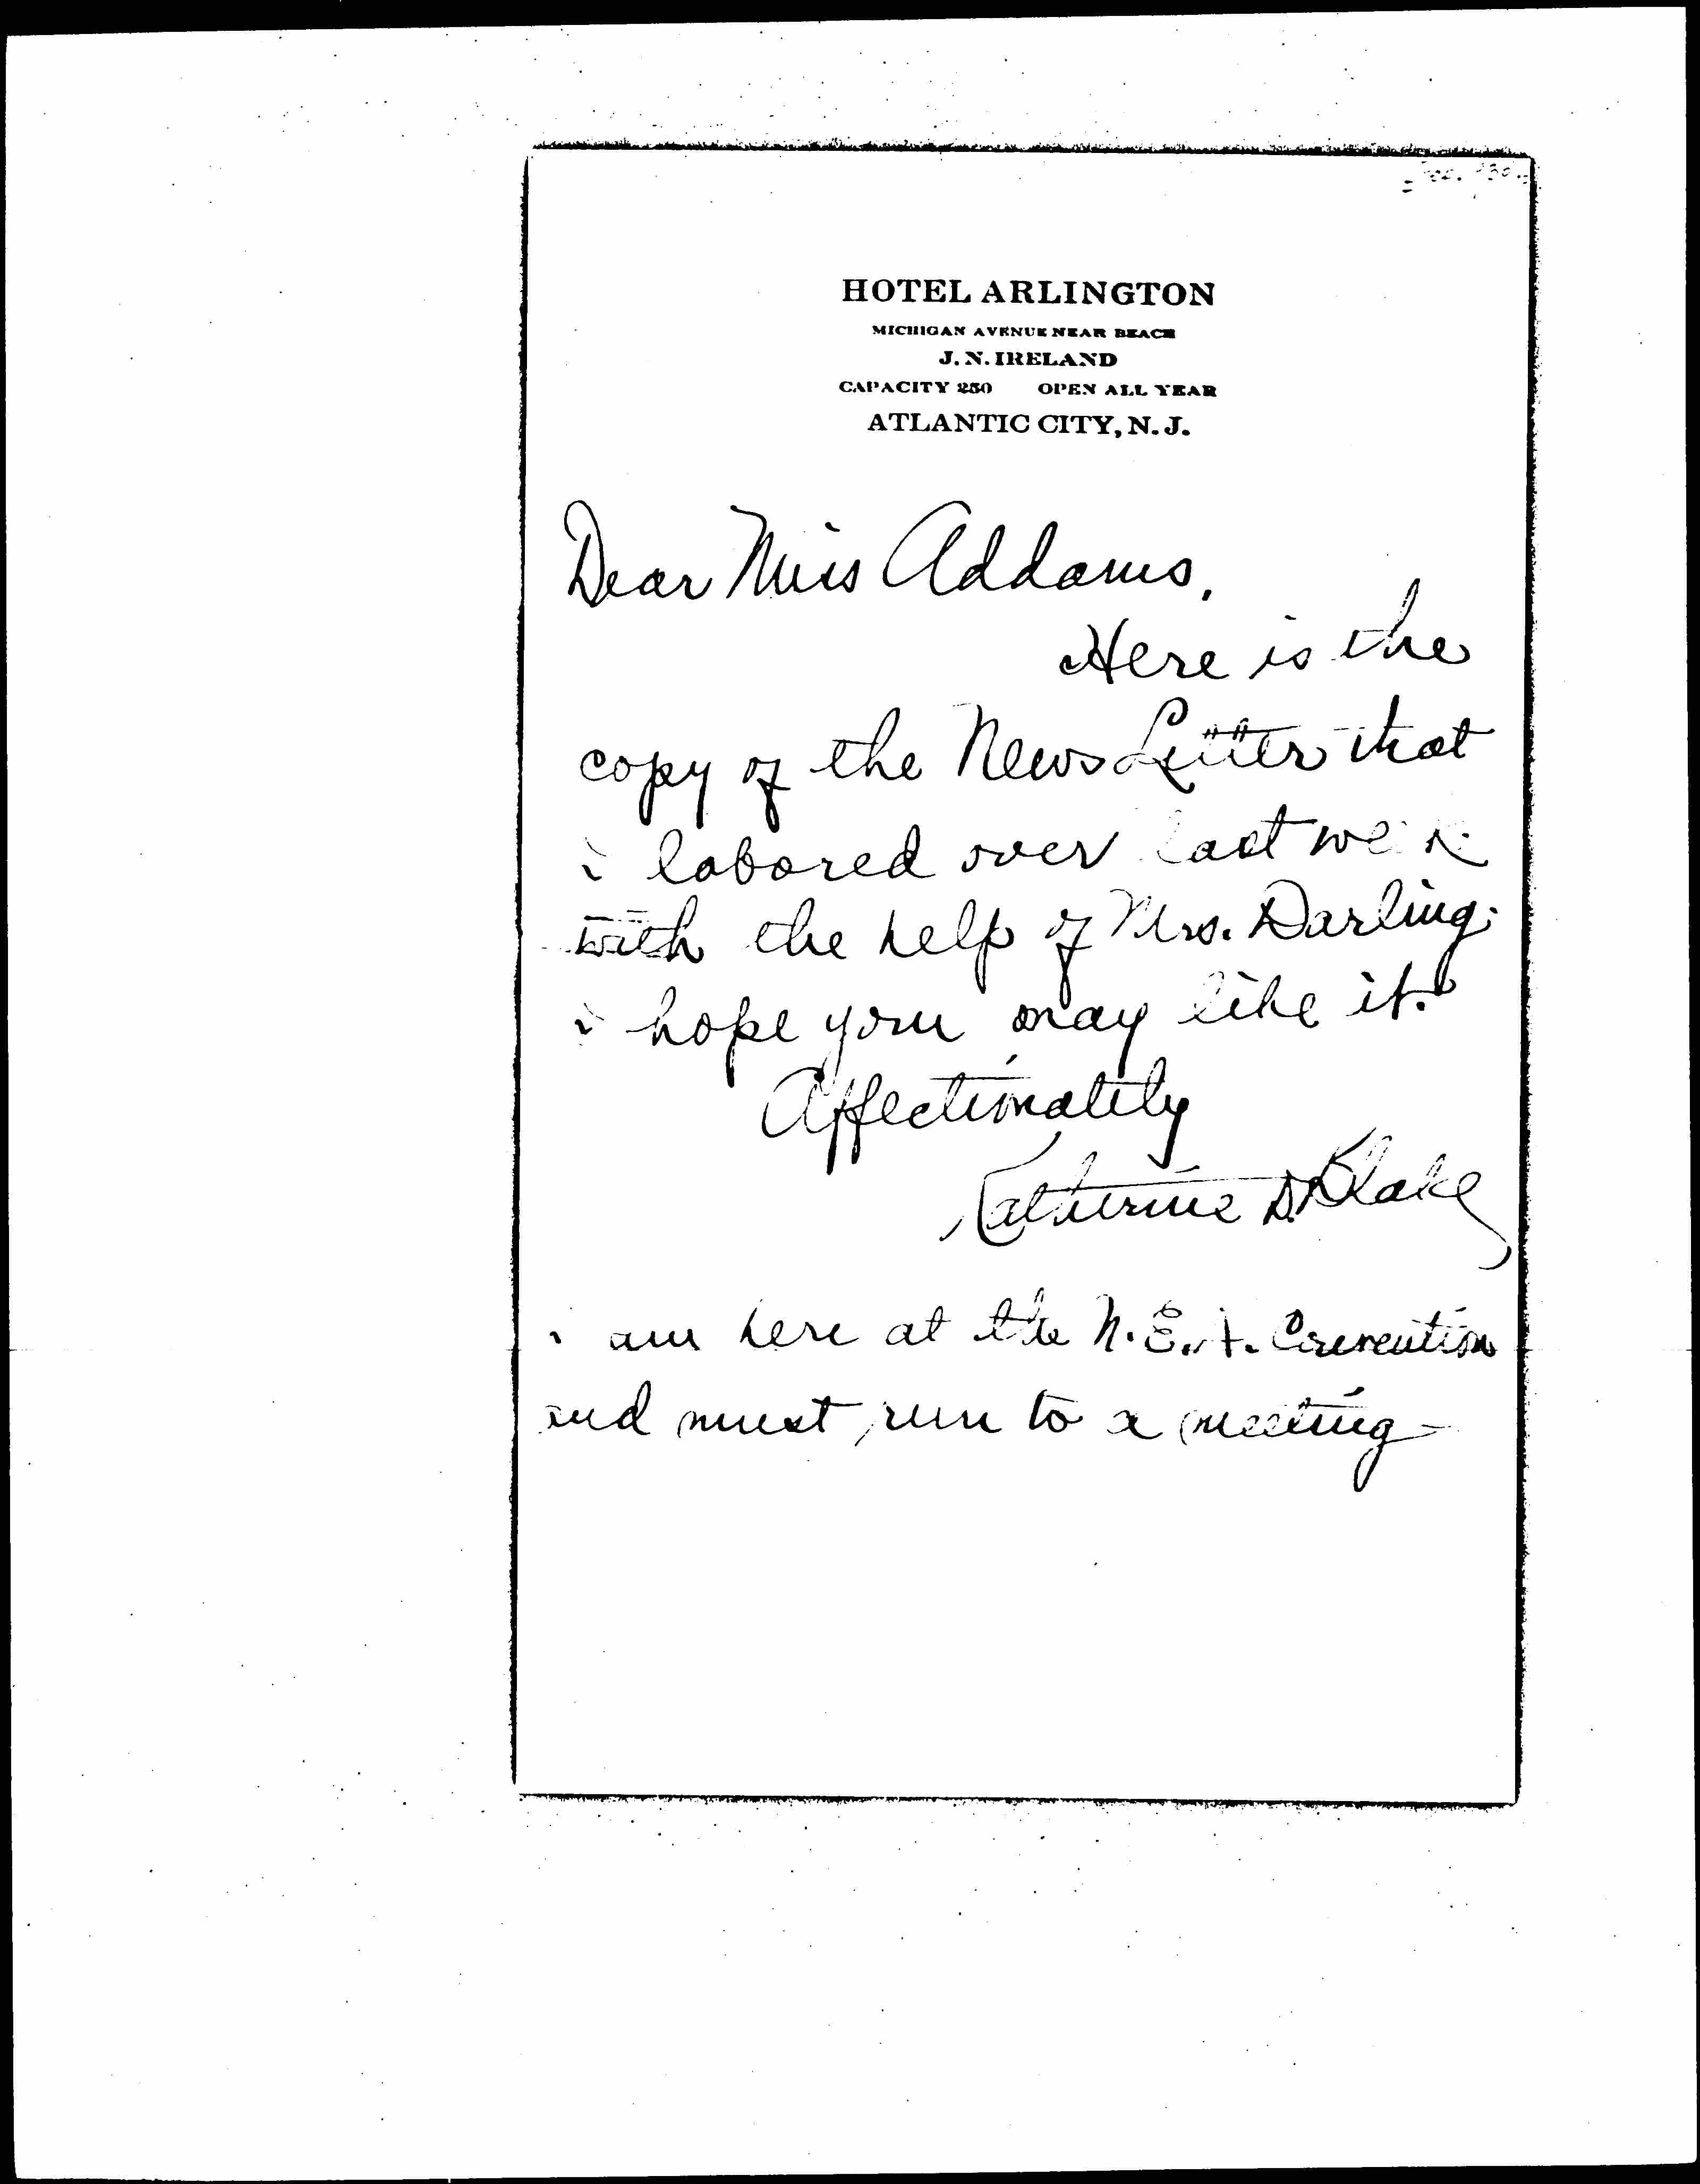 HOTEL ARLINGTON
MICHIGAN AVENUE NEAR BEACH
J. N. IRELAND
CAPACITY 250 OPEN ALL YEAR
ATLANTIC CITY, N. J.
Dear Miss Addams,
Here is the
copy of the News Letter that
i labored over last week
with the help of Mrs. Darling.
i hope you may like it.
Affectionately
Katherine D. Blake
i am here at the N.E.A. Convention
and must run to a meeting -